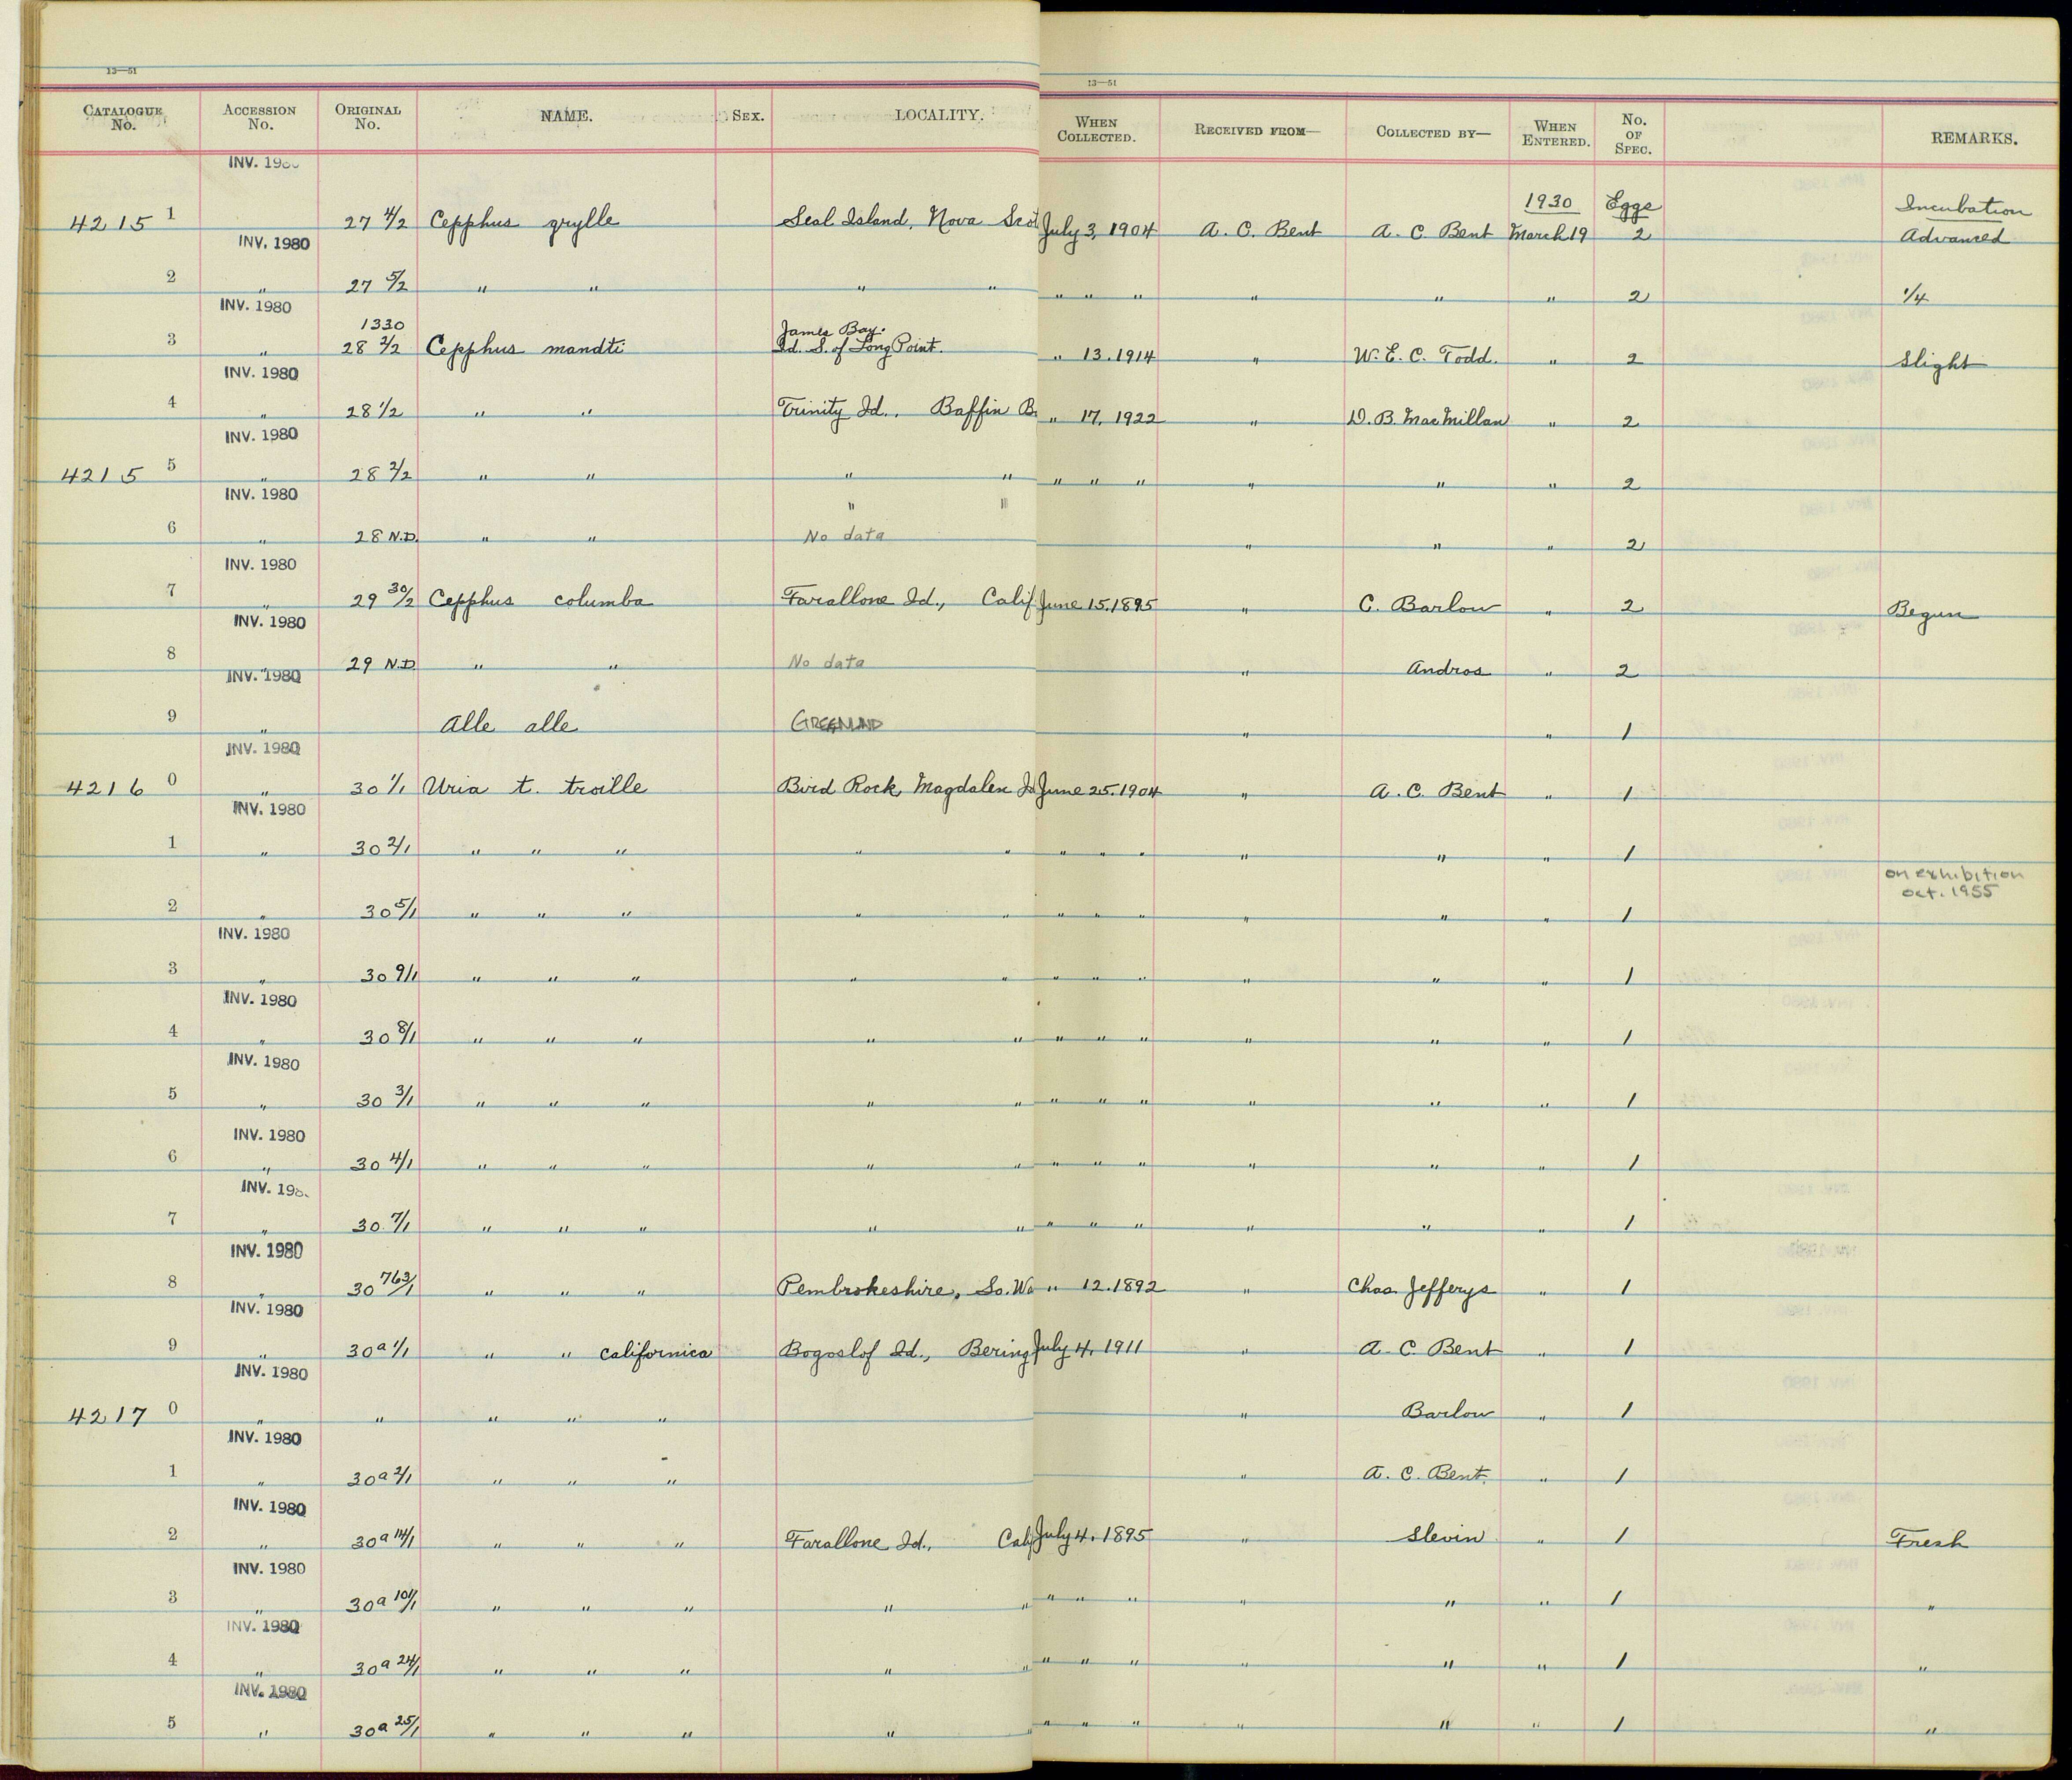 13—51
13—51
CATALOGUE No. ACCESSION No. ORIGINAL No. NAME. SEX. LOCALITY. WHEN COLLECTED. RECEIVED FROM— COLLECTED BY— WHEN ENTERED. No. OF SPEC. REMARKS.
INV. 1980
1930 Eggs Incubation
4215 1 27 4/2 Cepphus grylle Seal Island, Nova Scot July 3, 1904 A. C. Bent A. C. Bent March 19 2 Advanced
INV. 1980
2 " 27 5/2 " " " " " " " " " " 2 1/4
INV. 1980
1330 James Bay.
3 " 28 2/2 Cepphus mandti Id. S. of Long Point. " 13. 1914 " W. E. C. Todd. " 2 Slight
INV. 1980
4 " 28 1/2 " " Trinity Id., Baffin B. " 17, 1922 " D. B. MacMillan " 2
INV. 1980
4215 5 " 28 2/2 " " " " " " " " " " 2
INV. 1980
" "
6 " 28 N.D. " " No data " " " 2
INV. 1980
7 " 29 30/2 Cepphus columba Farallone Id., Calif June 15. 1895 " C. Barlow " 2 Begun
INV. 1980
8 29 N.D. " " No data " Andros " 2
INV. 1980
9 " Alle alle GREENLAND " " 1
INV. 1980
4216 0 " 30 1/1 Uria t. troille Bird Rock, Magdalen Is June 25. 1904 " A. C. Bent " 1
INV. 1980
1 " 30 2/1 " " " " " " " " " " " 1
on exhibition
oct. 1955
2 " 30 5/1 " " " " " " " " " " " 1
INV. 1980
3 " 30 9/1 " " " " " " " " " " " 1
INV. 1980
4 " 30 8/1 " " " " " " " " " " " 1
INV. 1980
5 " 30 3/1 " " " " " " " " " " " 1
INV. 1980
6 " 30 4/1 " " " " " " " " " " " 1
INV. 198
7 " 30 7/1 " " " " " " " " " " " 1
INV. 1980
8 " 30 763/1 " " " Pembrokeshire, So. Wa " 12. 1892 " Chas. Jefferys " 1
INV. 1980
9 " 30a 1/1 " " californica Bogoslof Id., Bering July 4, 1911 " A. C. Bent " 1
INV. 1980
4217 0 " " " " " " Barlow " 1
INV. 1980
1 " 30a 2/1 " " " " A. C. Bent. " 1
INV. 1980
2 " 30a 14/1 " " " Farallone Id., Cal July 4. 1895 " Slevin " 1 Fresh
INV. 1980
3 " 30a 10/1 " " " " " " " " " " " 1 "
INV. 1980
4 " 30a 24/1 " " " " " " " " " " " 1 "
INV. 1980
5 " 30a 25/1 " " " " " " " " " " " 1 "